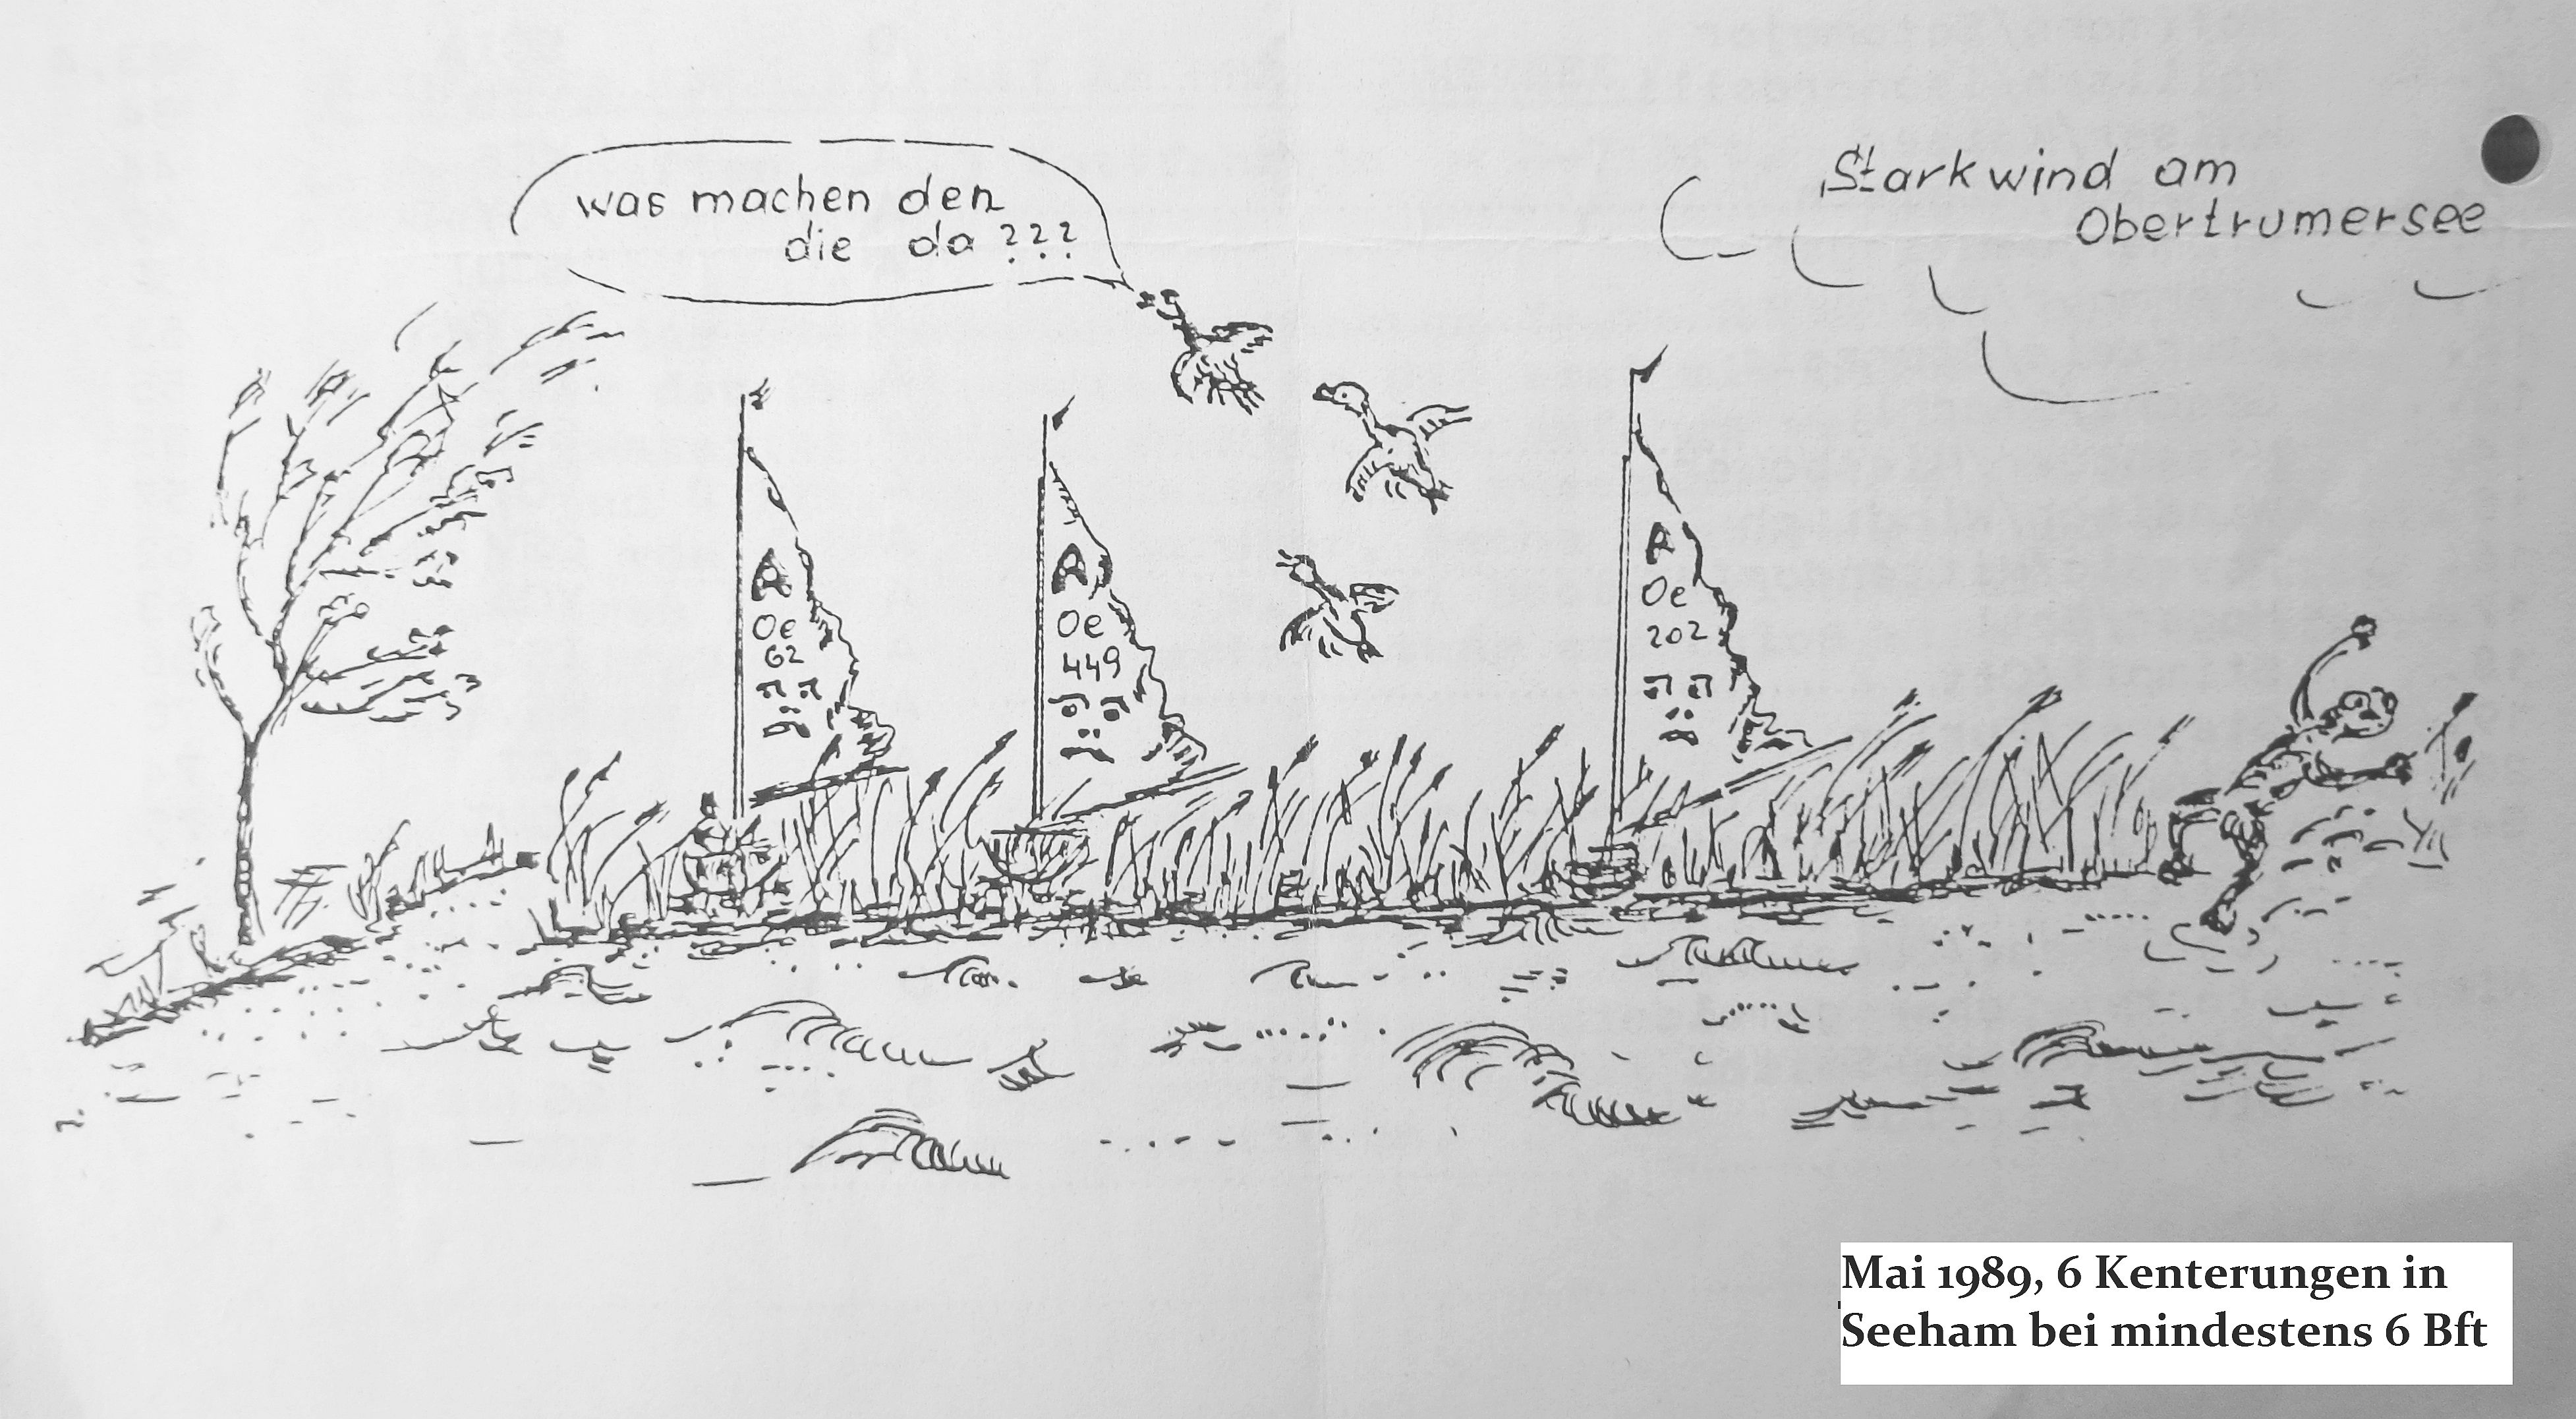 was machen den
die da ???
Starkwind am
Obertrumersee
R
Oe
62
R
Oe
449
R
Oe
202
Mai 1989, 6 Kenterungen in
Seeham bei mindestens 6 Bft